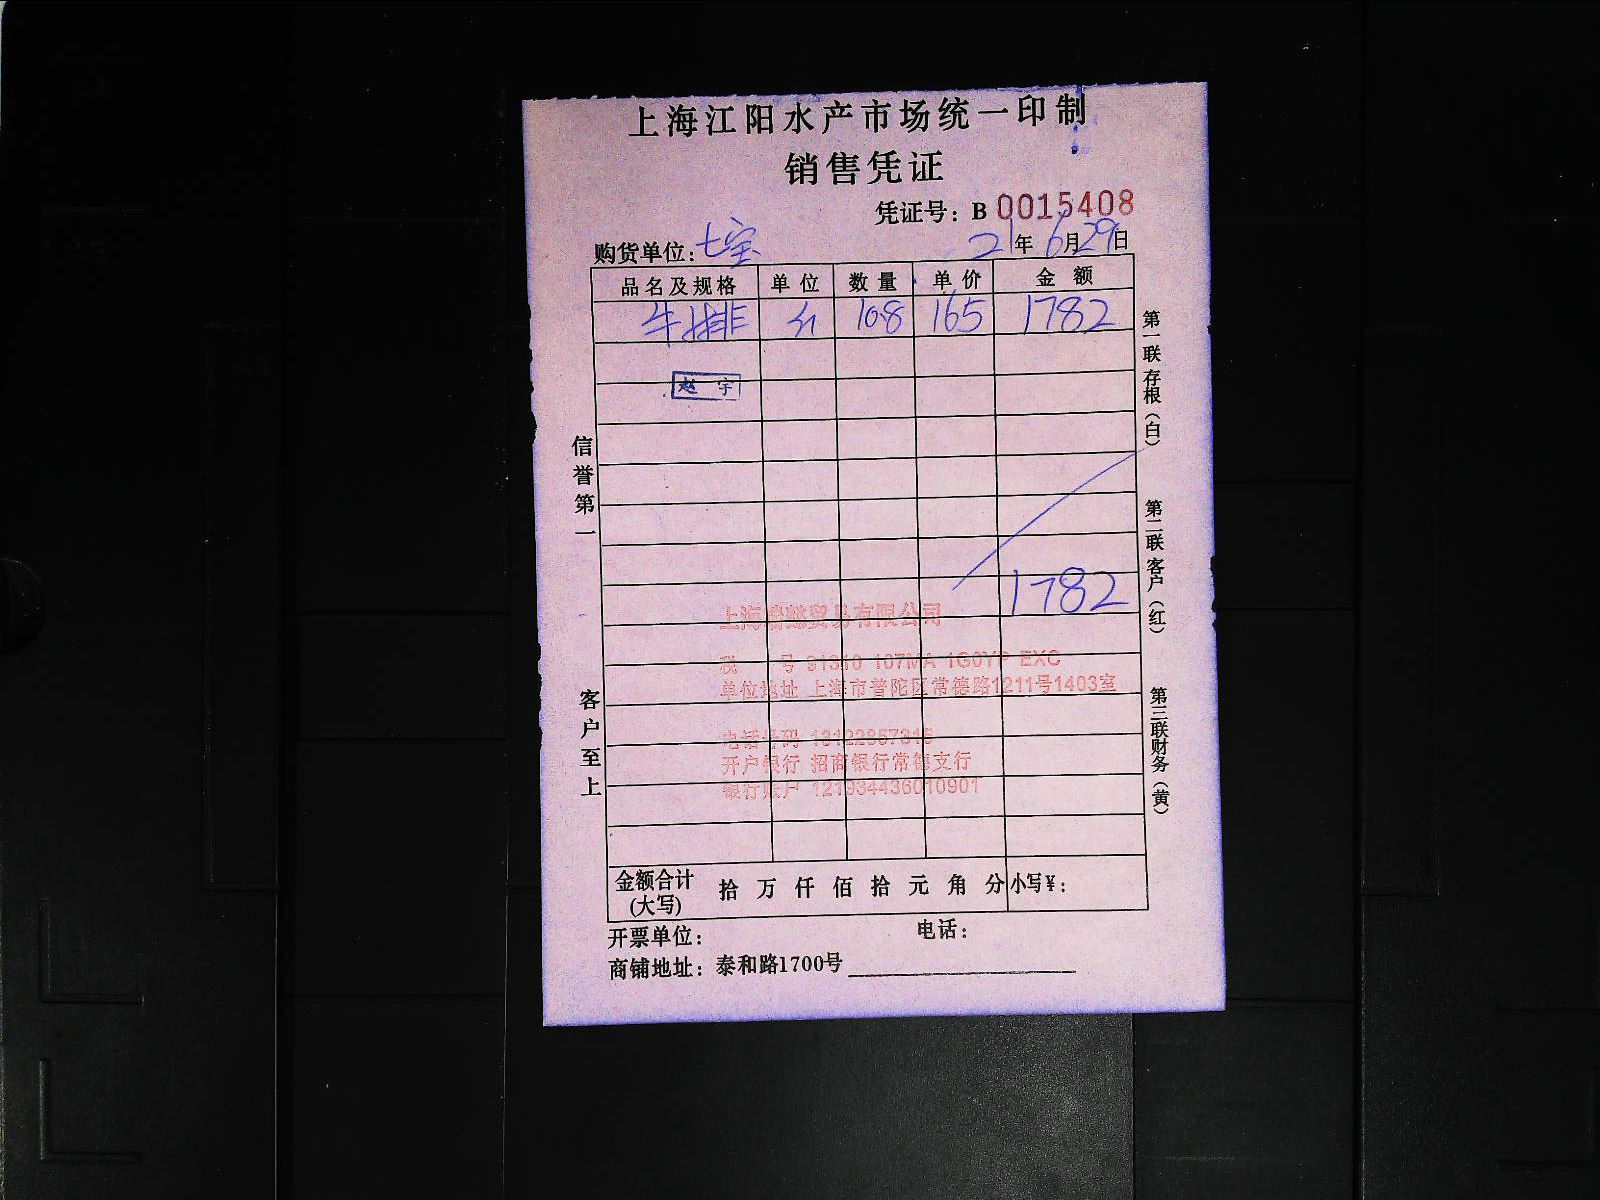 上海江阳水产市场统一印制
销售凭证
凭证号：B 0015408
购货单位：七宝 21年6月29日
品名及规格 单位 数量 单价 金额
牛排 10.8 165 1782
赵宇
1782
上海 贸易有限公司
税 号 91310 107MA 1G0YP EXC
单位地址 上海市普陀区常德路1211号1403室
电话号码
开户银行 招商银行常德支行
银行账户 121934436010901
金额合计(大写) 拾 万 仟 佰 拾 元 角 分 小写¥：
开票单位： 电话：
商铺地址：泰和路1700号
信誉第一
客户至上
第一联存根（白）
第二联客户（红）
第三联财务（黄）